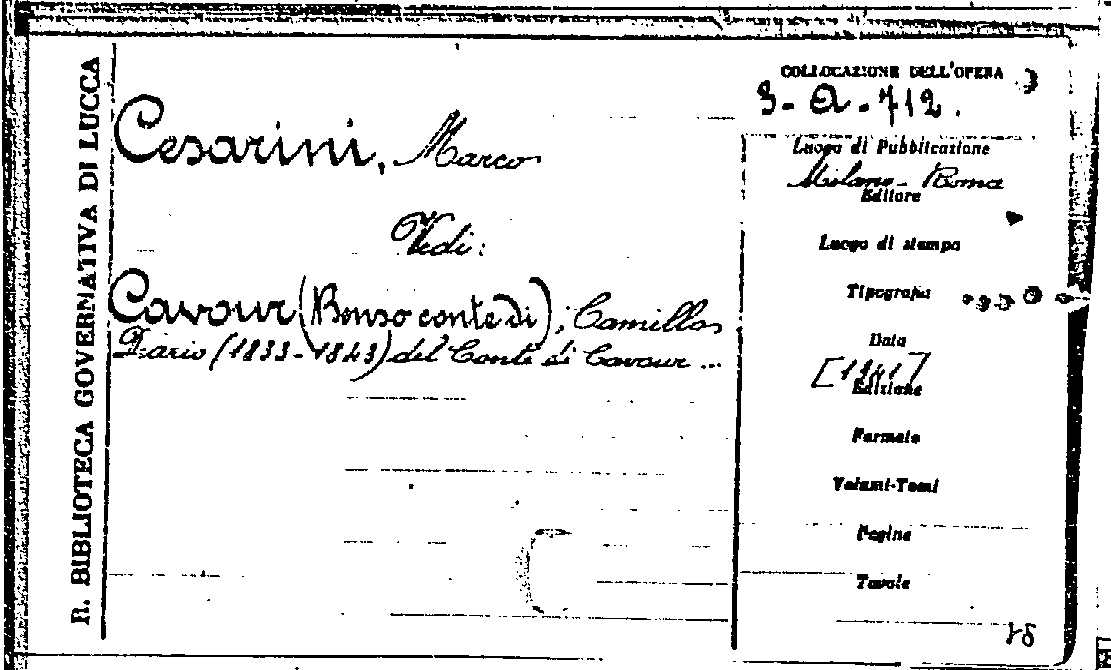 R. BIBLIOTECA GOVERNATIVA DI LUCCA
Cesarini, Marco
Vedi:
Cavour (Benso conte di), Camillo
Diario (1833-1843) del Conte di Cavour ...
COLLOCAZIONE DELL'OPERA
3-A-712.
Luogo di Pubblicazione
Milano - Roma
Editore
Luogo di stampa
Tipografia
Data
[1941]
Edizione
Formato
Volumi-Tomi
Pagine
Tavole